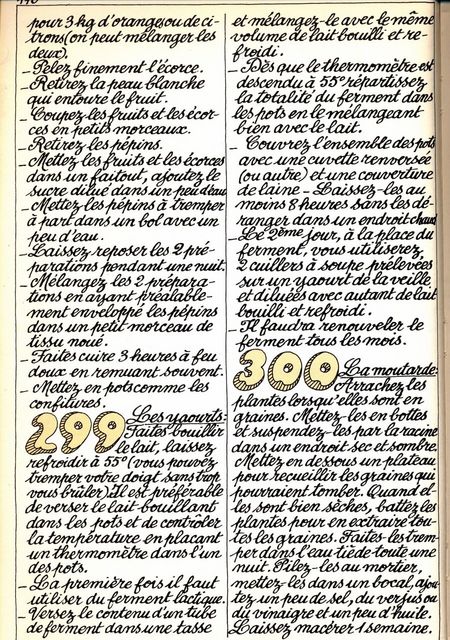 pour 3 kg d'oranges ou de ci-
trons (on peut mélanger les
deux).
_ Pelez finement l'écorce.
_ Retirez la peau blanche
qui entoure le fruit.
_ Coupez les fruits et les écor-
ces en petits morceaux.
_ Retirez les pépins.
_ Mettez les fruits et les écorces
dans un faitout, ajoutez le
sucre dilué dans un peu d'eau
_ Mettez les pépins à tremper
à part dans un bol avec un
peu d'eau.
_ Laissez reposer les 2 pré-
parations pendant une nuit.
_ Mélangez les 2 prépara-
tions en ayant préalable-
ment enveloppé les pépins
dans un petit morceau de
tissu noué.
_ Faites cuire 3 heures à feu
doux en remuant souvent.
_ Mettez en pots comme les
confitures.
299 Les yaourts:
Faites bouillir
le lait, laissez
refroidir à 55° (vous pouvez
tremper votre doigt sans trop
vous brûler). Il est préférable
de verser le lait bouillant
dans les pots et de contrôler
la température en placant
un thermomètre dans l'un
des pots.
_ La première fois il faut
utiliser du ferment lactique.
_ Versez le contenu d'un tube
de ferment dans une tasse
et mélangez-le avec le même
volume de lait bouilli et re-
froidi.
_ Dès que le thermomètre est
descendu à 55° répartissez
la totalité du ferment dans
les pots en le mélangeant
bien avec le lait.
_ Couvrez l'ensemble des pots
avec une cuvette renversée
(ou autre) et une couverture
de laine - Laissez-les au
moins 8 heures sans les dé-
ranger dans un endroit chaud
_ Le 2ème jour, à la place du
ferment, vous utiliserez
2 cuillers à soupe prélevées
sur un yaourt de la veille
et diluées avec autant de lait
bouilli et refroidi.
_ Il faudra renouveler le
ferment tous les mois.
300 La moutarde:
Arrachez les
plantes lorsqu'elles sont en
graines. Mettez-les en bottes
et suspendez-les par la racine
dans un endroit sec et sombre.
Mettez en dessous un plateau
pour recueillir les graines qui
pourraient tomber. Quand el-
les sont bien sèches, battez les
plantes pour en extraire tou-
tes les graines. Faites-les trem-
per dans l'eau tiède toute une
nuit. Pilez-les au mortier,
mettez-les dans un bocal, ajou-
tez un peu de sel, du verjus ou
du vinaigre et un peu d'huile.
Laissez macérer 1 semaine.